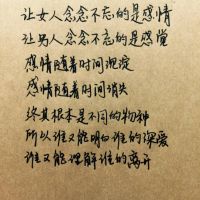 让女人念念不忘的是感情
让男人念念不忘的是感觉
感情随着时间沉淀
感情随着时间消失
终其根本是不同的物种
所以谁又能明白谁的深爱
谁又能理解谁的离开